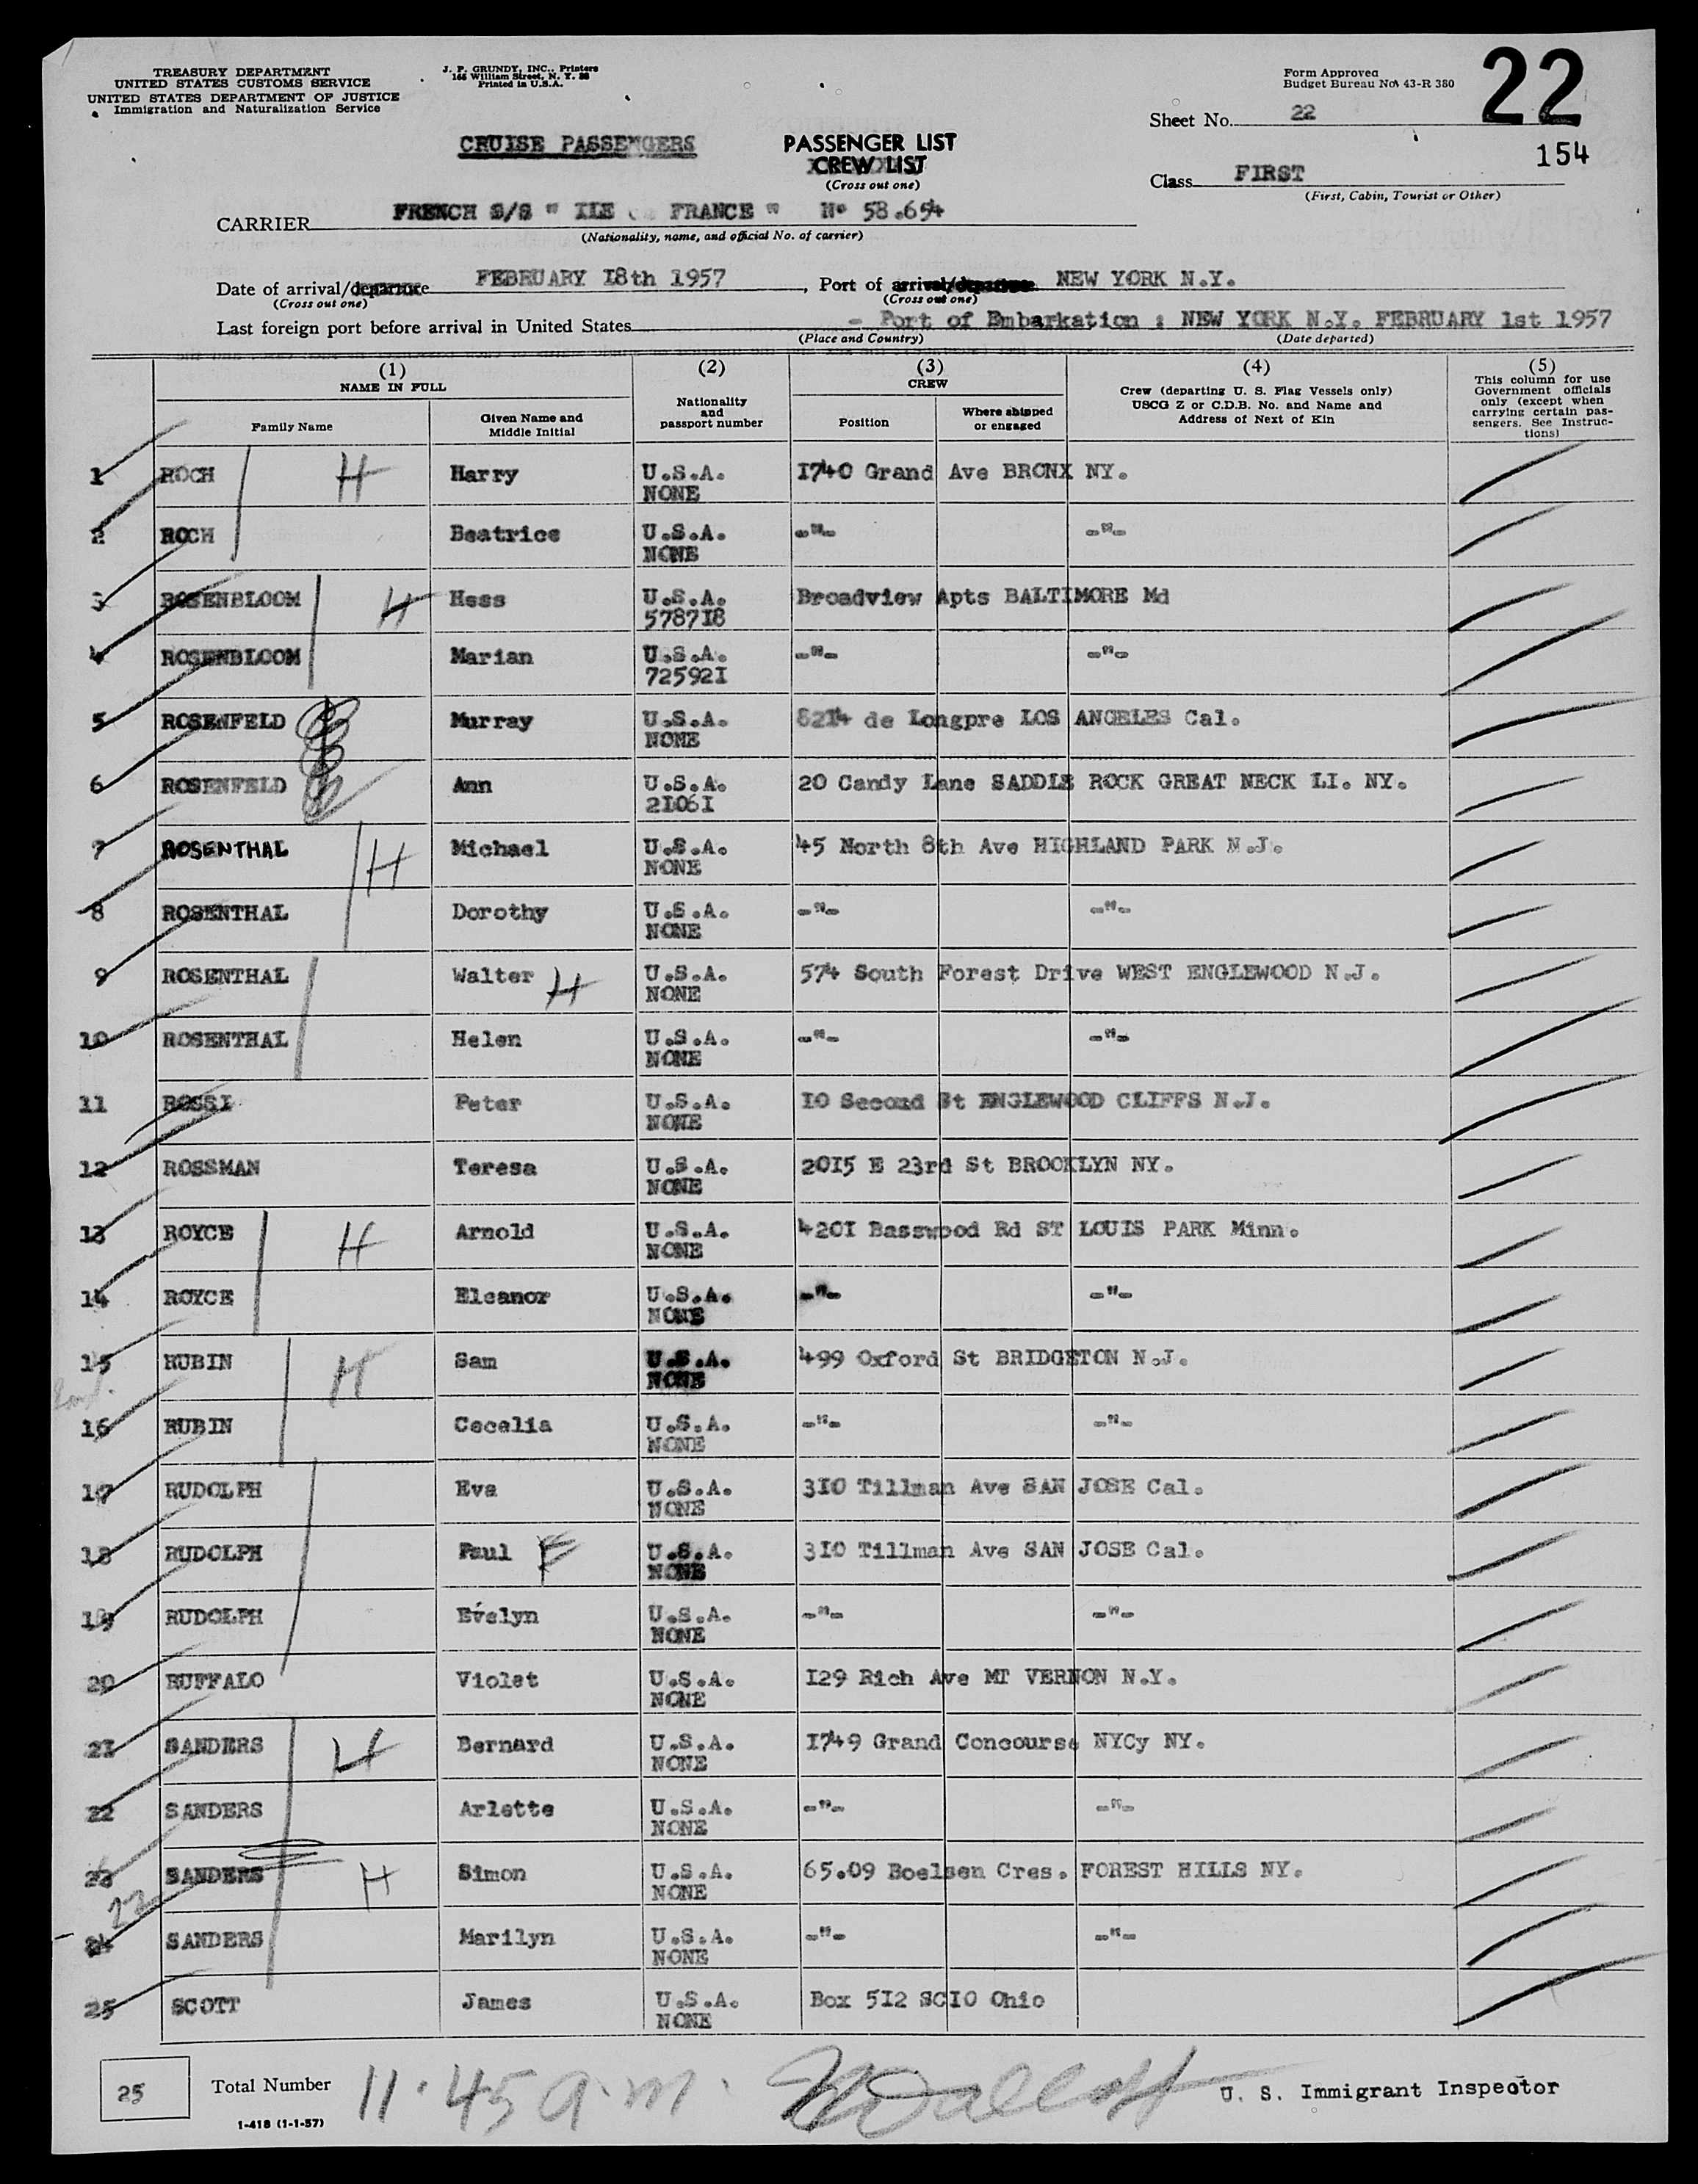 TREASURY DEPARTMENT
UNITED STATES CUSTOMS SERVICE
UNITED STATES DEPARTMENT OF JUSTICE
Immigration and Naturalization Service
J. P. GRUNDY, INC., Printers
166 William Street, N. Y. 38
Printed in U.S.A.
Form Approved
Budget Bureau No. 43-R 380
22
Sheet No. 22
154
CRUISE PASSENGERS
PASSENGER LIST
CREW LIST
(Cross out one)
Class FIRST
(First, Cabin, Tourist or Other)
CARRIER FRENCH S/S " ILE FRANCE " N° 58.654
(Nationality, name, and official No. of carrier)
Date of arrival/departure FEBRUARY I8th 1957, Port of arrival/departure NEW YORK N.Y.
(Cross out one) (Cross out one)
Last foreign port before arrival in United States - Port of Embarkation : NEW YORK N.Y. FEBRUARY 1st 1957
(Place and Country) (Date departed)
(1) NAME IN FULL
Family Name
Given Name and Middle Initial
(2) Nationality and passport number
(3) CREW
Position
Where shipped or engaged
(4) Crew (departing U. S. Flag Vessels only) USCG Z or C.D.B. No. and Name and Address of Next of Kin
(5) This column for use Government officials only (except when carrying certain passengers. See Instructions)
1 ROCH H Harry U.S.A. NONE I740 Grand Ave BRONX NY.
2 ROCH Beatrice U.S.A. NONE -"- -"-
3 ROSENBLOOM H Hess U.S.A. 5787I8 Broadview Apts BALTIMORE Md
4 ROSENBLOOM Marian U.S.A. 72592I -"- -"-
5 ROSENFELD Murray U.S.A. NONE 82I4 de Longpre LOS ANGELES Cal.
6 ROSENFELD Ann U.S.A. 2I06I 20 Candy Lane SADDLE ROCK GREAT NECK LI. NY.
7 ROSENTHAL H Michael U.S.A. NONE 45 North 8th Ave HIGHLAND PARK N.J.
8 ROSENTHAL Dorothy U.S.A. NONE -"- -"-
9 ROSENTHAL Walter H U.S.A. NONE 574 South Forest Drive WEST ENGLEWOOD N.J.
10 ROSENTHAL Helen U.S.A. NONE -"- -"-
11 ROSSI Peter U.S.A. NONE IO Second St ENGLEWOOD CLIFFS N.J.
12 ROSSMAN Teresa U.S.A. NONE 20I5 E 23rd St BROOKLYN NY.
13 ROYCE H Arnold U.S.A. NONE 420I Basswood Rd ST LOUIS PARK Minn.
14 ROYCE Eleanor U.S.A. NONE -"- -"-
15 RUBIN H Sam U.S.A. NONE 499 Oxford St BRIDGETON N.J.
16 RUBIN Cecelia U.S.A. NONE -"- -"-
17 RUDOLPH Eva U.S.A. NONE 3I0 Tillman Ave SAN JOSE Cal.
18 RUDOLPH Paul F U.S.A. NONE 3I0 Tillman Ave SAN JOSE Cal.
19 RUDOLPH Evelyn U.S.A. NONE -"- -"-
20 RUFFALO Violet U.S.A. NONE I29 Rich Ave MT VERNON N.Y.
21 SANDERS H Bernard U.S.A. NONE I749 Grand Concourse NYCy NY.
22 SANDERS Arlette U.S.A. NONE -"- -"-
23 SANDERS H Simon U.S.A. NONE 65.09 Boelsen Cres. FOREST HILLS NY.
22
24 SANDERS Marilyn U.S.A. NONE -"- -"-
25 SCOTT James U.S.A. NONE Box 5I2 SCIO Ohio
25 Total Number 11.45 a.m. U. S. Immigrant Inspector
I-418 (1-1-57)